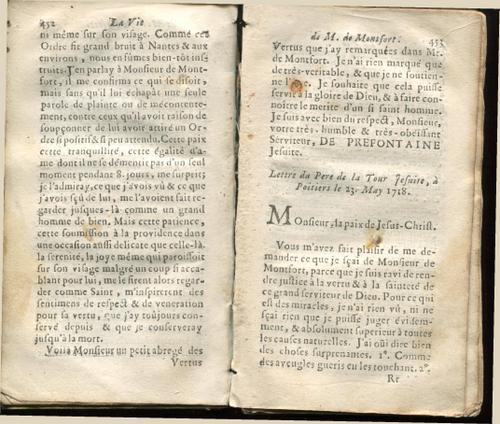 452 La Vie
ni même sur son visage. Comme cet
Ordre fit grand bruit à Nantes & aux
environs, nous en fûmes bien-tôt ins
truits. J'en parlay à Monsieur de Mont-
fort, il me confirma ce qui se disoit,
mais sans qu'il lui échapât une seule
parole de plainte ou de mécontente-
ment, contre ceux qu'il avoit raison de
soupçonner de lui avoir attiré un Or-
dre si positif & si peu attendu. Cette paix
cette tranquillité, cette égalité d'a-
me dont il ne se démentit pas d'un seul
moment pendant 8. jours, me surprit;
je l'admiray, ce que j'avois vû & ce que
j'avois sçû de lui, me l'avoient fait re-
garder jusques-là comme un grand
homme de bien. Mais cette patience,
cette soumission à la providence dans
une occasion aussi delicate que celle-là
la serenité, la joye même qui paroissoit
sur son visage malgré un coup si acca-
blant pour lui, me le firent alors regar-
der comme Saint, m'inspirerent des
sentimens de respect & de veneration
pour sa vertu, que j'ay toujours con-
servé depuis & que je conserveray
jusqu'à la mort.
Voila Monsieur un petit abregé des
Vertus
de M. de Montfort. 453
Vertus que j'ay remarquées dans Mr.
de Montfort. Je n'ai rien marqué que
de très-veritable, & que je ne soutien-
ne l'être. Je souhaite que cela puisse
servir à la gloire de Dieu, & à faire con-
noître le merite d'un si saint homme.
Je suis avec bien du respect, Monsieur,
votre très-humble & très-obéïssant
Serviteur, DE PREFONTAINE
Jesuite.
Lettre du Pere de la Tour Jesuite, à
Poitiers le 23. May 1718.
Monsieur, la paix de Jesus-Christ.
Vous m'avez fait plaisir de me de-
mander ce que je sçai de Monsieur de
Montfort, parce que je suis ravi de ren-
dre justice à la vertu & à la sainteté de
ce grand serviteur de Dieu. Pour ce qui
est des miracles, je n'ai rien vû, ni ne
sçai rien que je puisse juger évidem-
ment, & absolument superieur à toutes
les causes naturelles. J'ai oüi dire bien
des choses surprenantes. 1°. Comme
des aveugles gueris en les touchant. 2°.
Rr